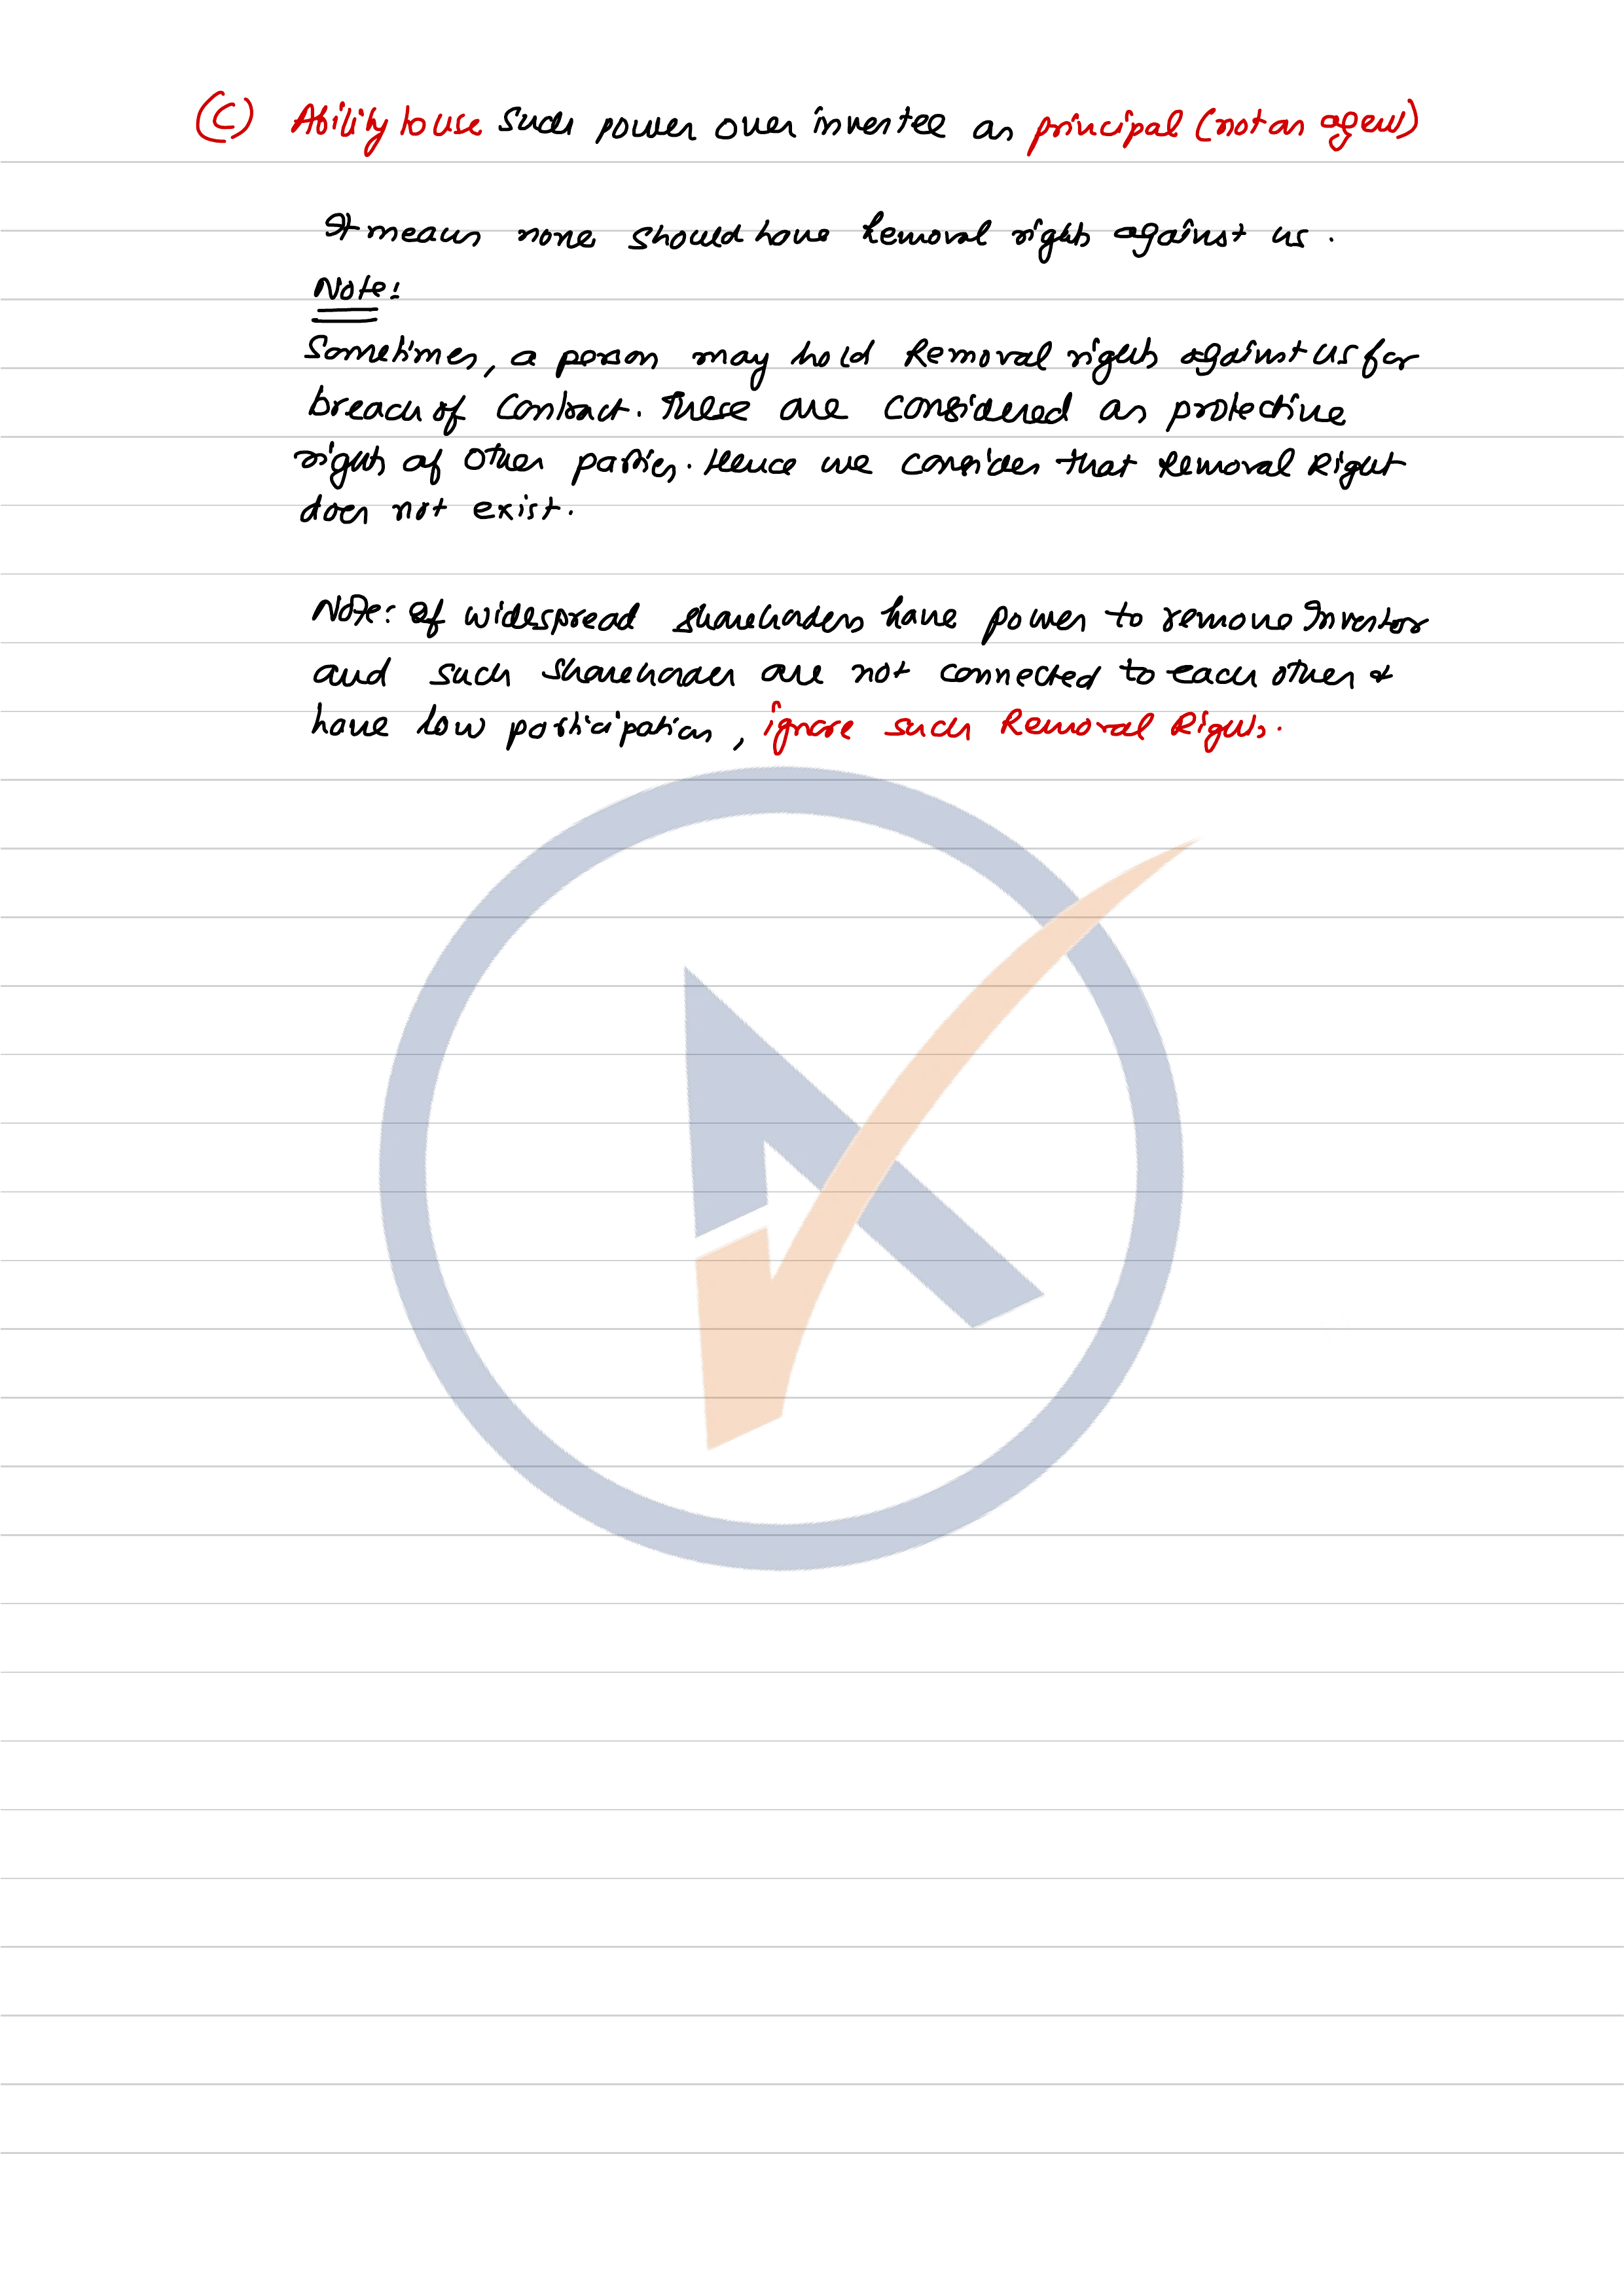 (C) Ability to use such power over investee as principal (not as agent)
It means none should have Removal rights against us.
Note:
Sometimes, a person may hold Removal rights against us for
breach of contract. These are considered as protective
rights of other parties. Hence we consider that Removal Right
does not exist.
Note: If widespread shareholders have power to remove Investor
and such shareholder are not connected to each other &
have low participation, ignore such Removal Rights.